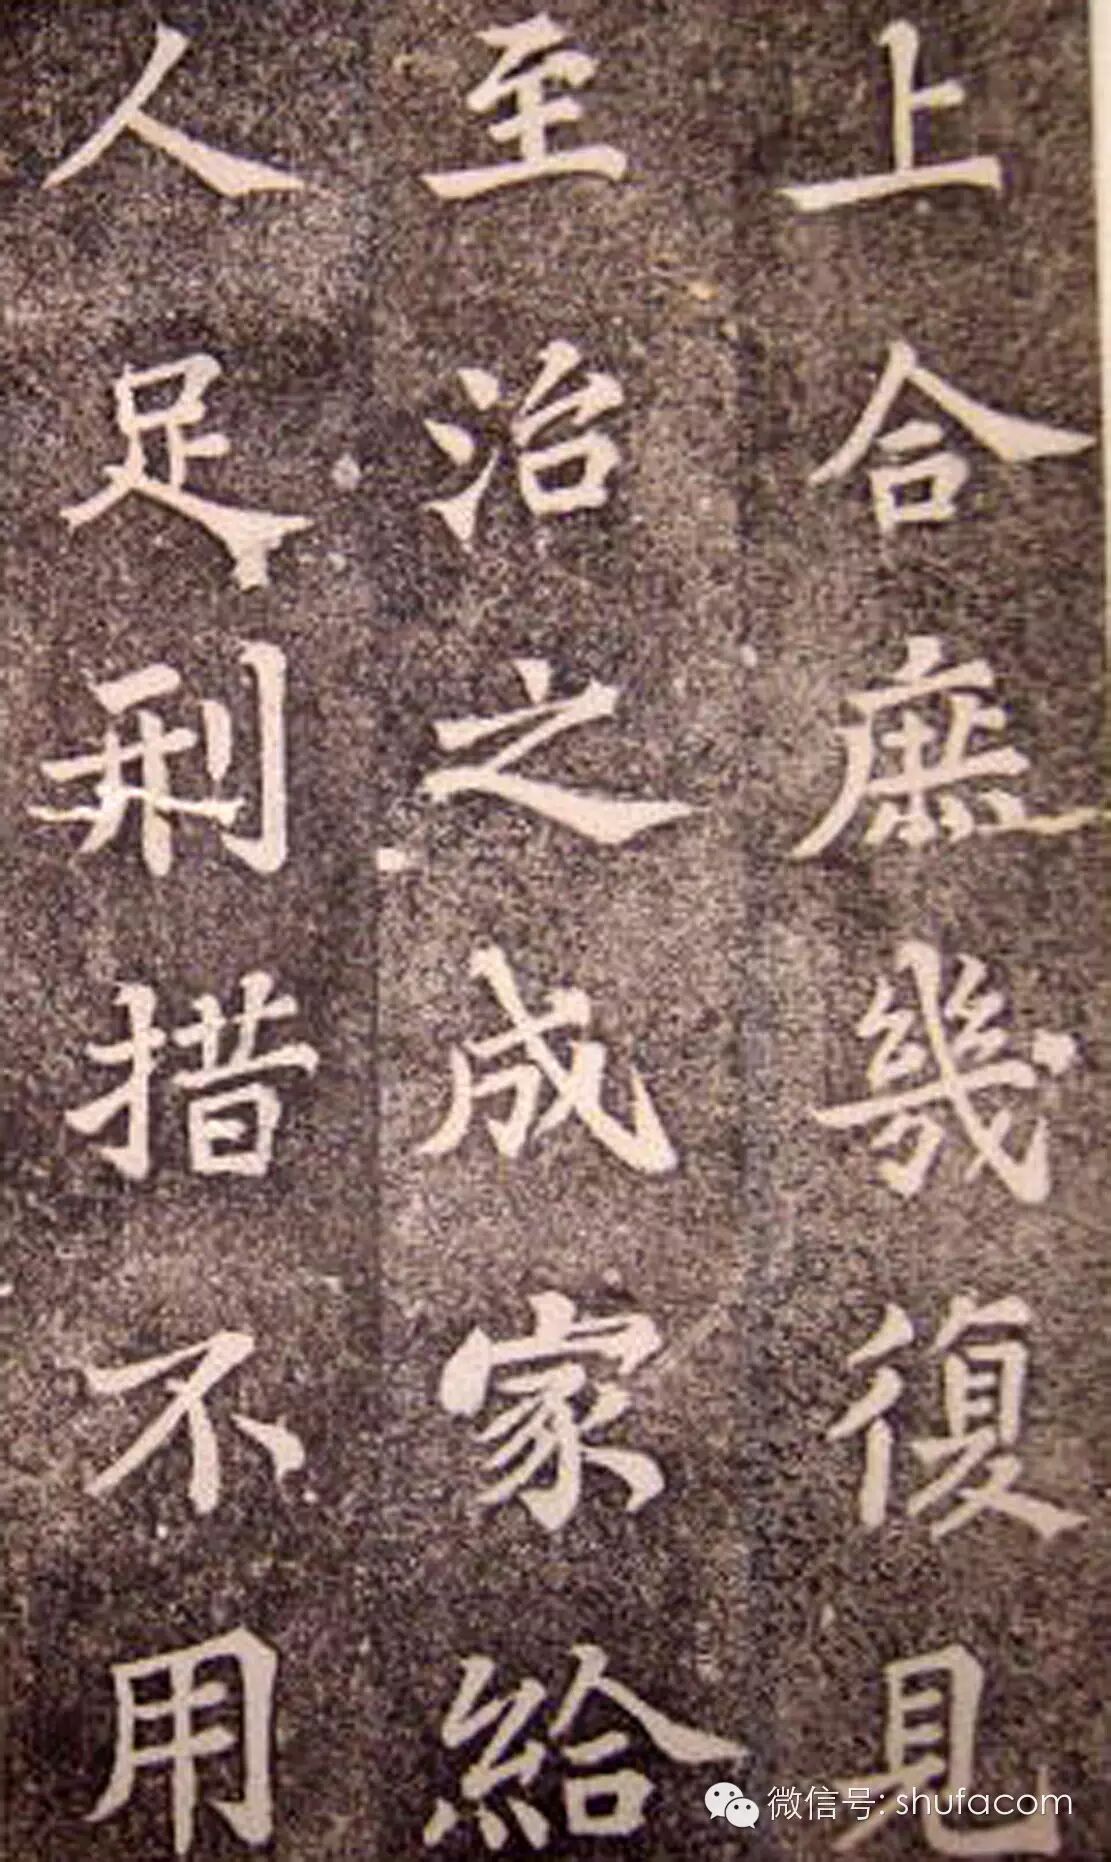 上合庶幾復見
至治之成家給
人足刑措不用
微信号: shufacom